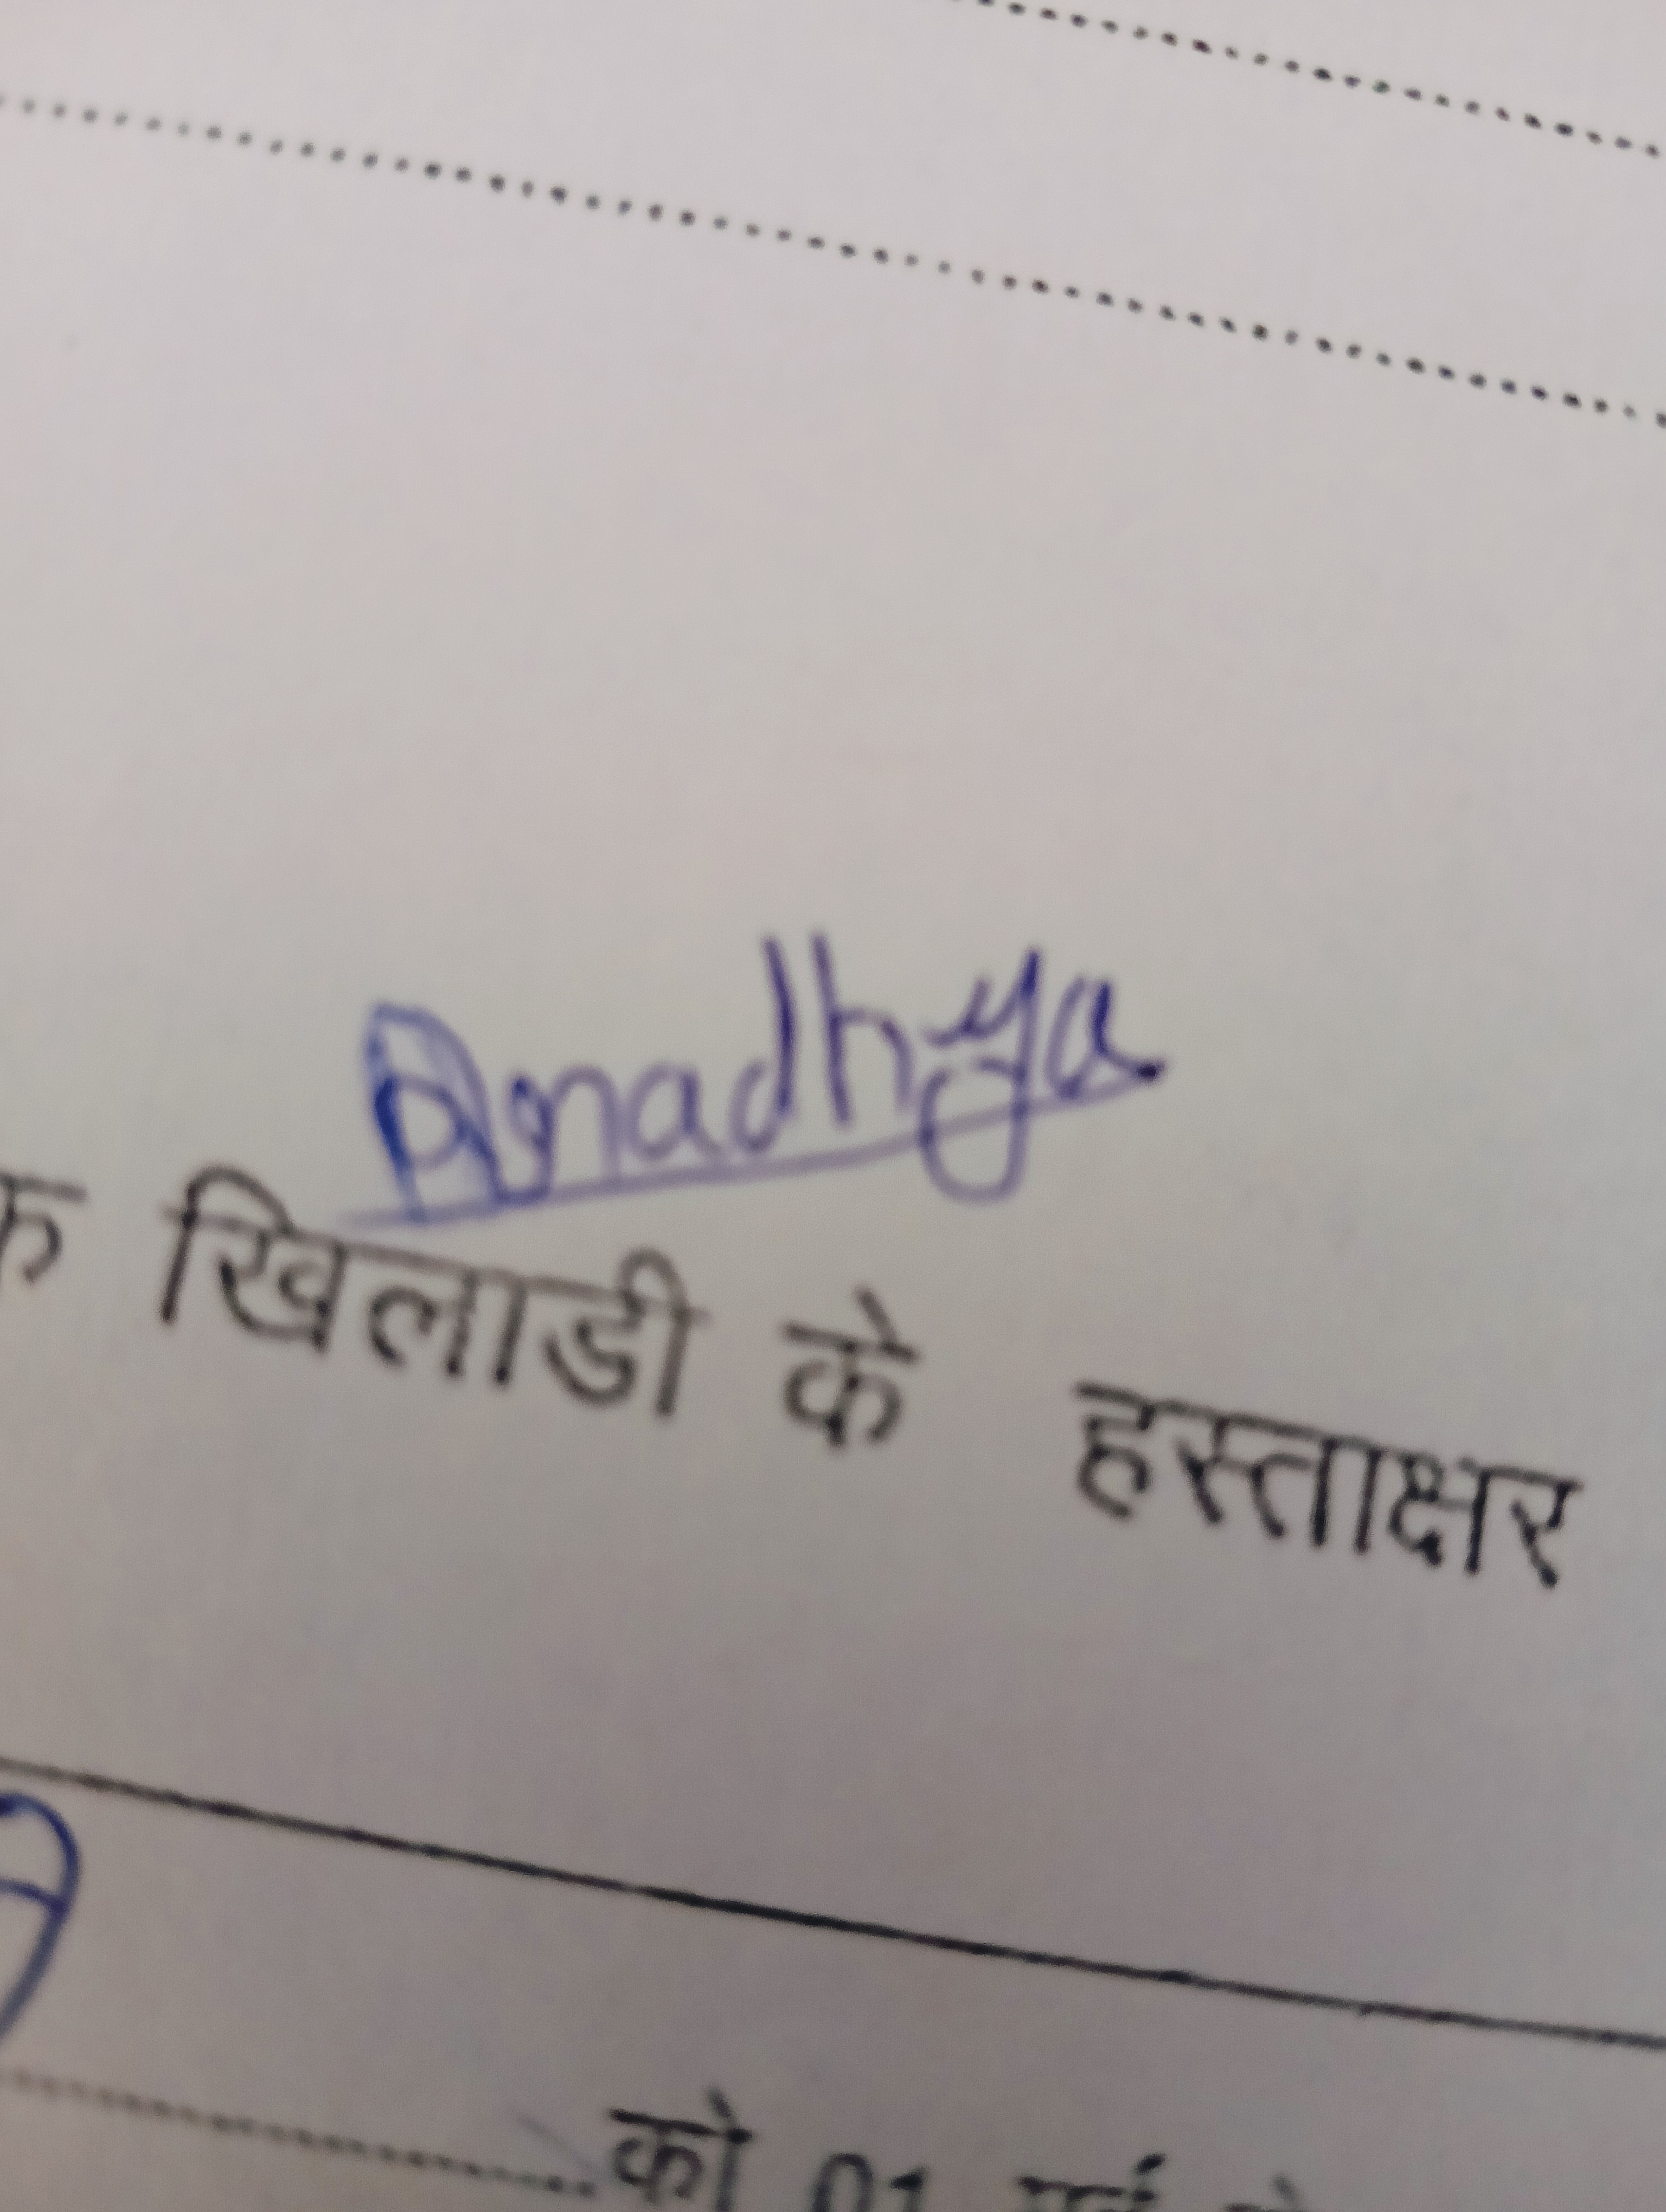 Anadhya
खिलाडी के हस्ताक्षर
को 01 मई से